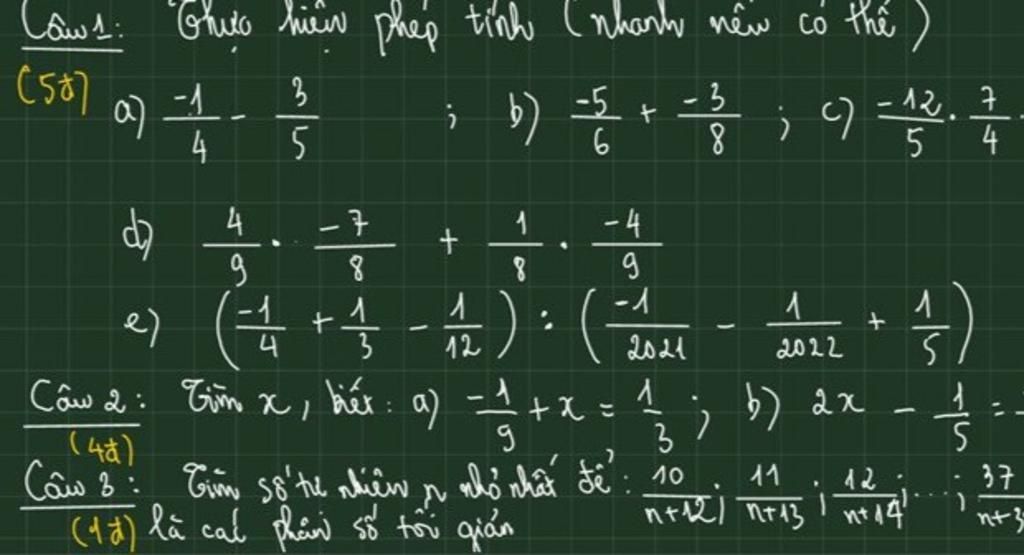 Câu 1: Thực hiện phép tính (nhanh nếu có thể)
(5đ) a) -1/4 - 3/5 ; b) -5/6 + -3/8 ; c) -12/5 . 7/4
d) 4/9 . -7/8 + 1/8 . -4/9
e) (-1/4 + 1/3 - 1/12) : (-1/2021 - 1/2022 + 1/5)
Câu 2: Tìm x, biết: a) -1/9 + x = 1/3 ; b) 2x - 1/5 =
(4đ)
Câu 3: Tìm số tự nhiên n nhỏ nhất để: 10/n+12 ; 11/n+13 ; 12/n+14 ; ... ; 37/n+3
(1đ) là các phân số tối giản